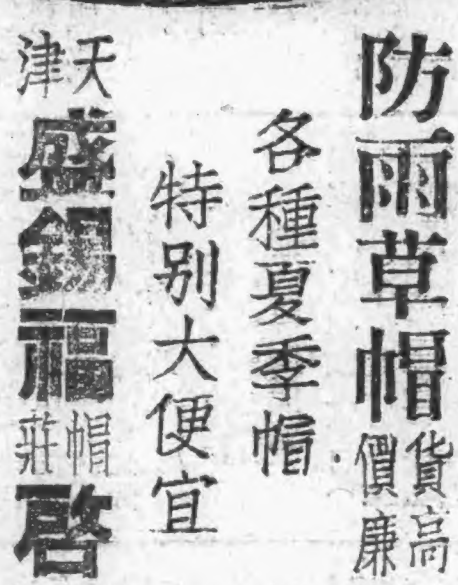 防雨草帽貨高價廉
各種夏季帽
特別大便宜
天津盛錫福帽莊啓